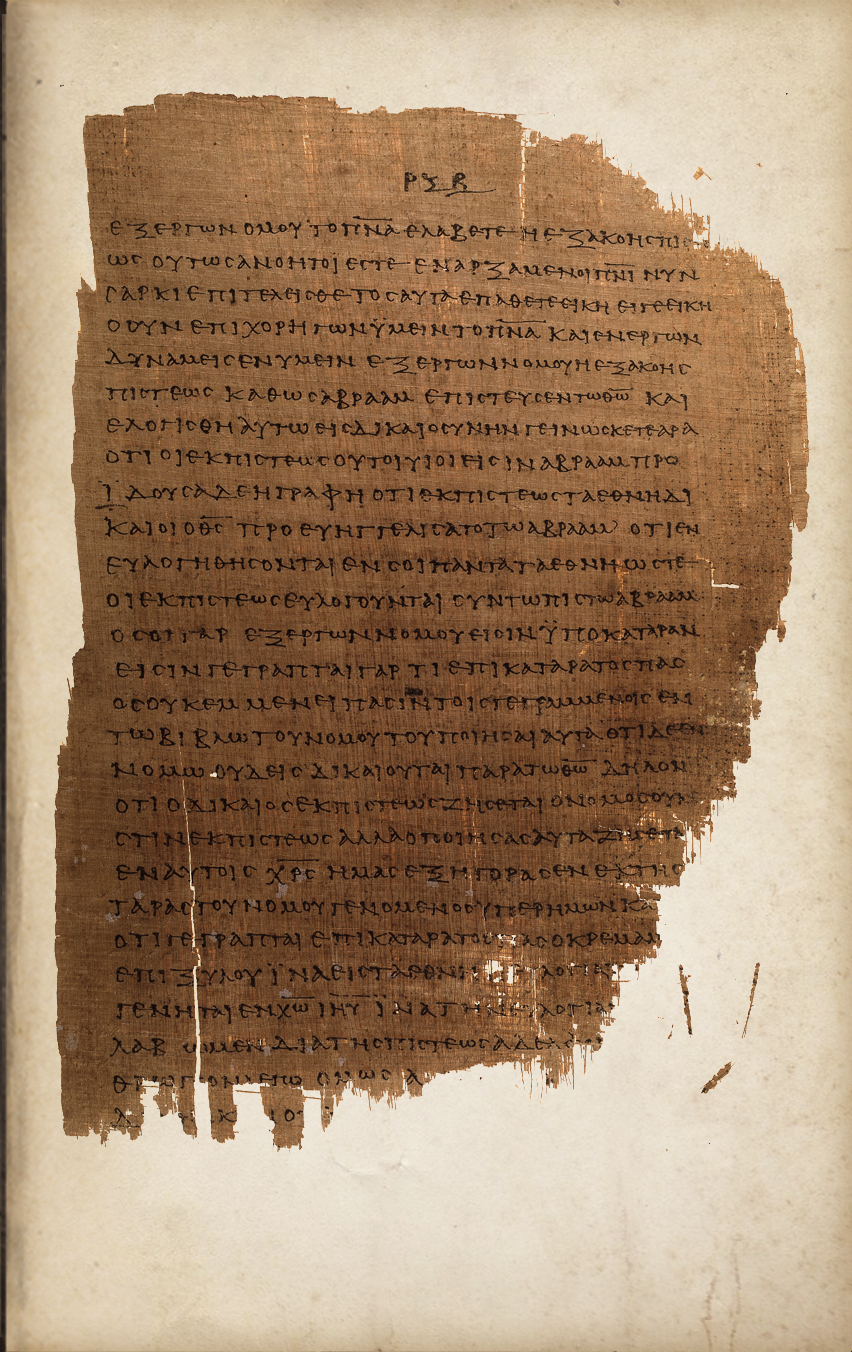 ΡΞΒ
ΕΞ ΕΡΓΩΝ ΟΜΟΥ ΤΟ Π̅Ν̅Α̅ ΕΛΑΒΕΤΕ Η ΕΞ ΑΚΟΗϹ ΠΙϹ
ΩϹ ΟΥΤΩϹ ΑΝΟΗΤΟΙ ΕϹΤΕ ΕΝΑΡΞΑΜΕΝΟΙ Π̅Ν̅Ι̅ ΝΥΝ
ϹΑΡΚΙ ΕΠΙΤΕΛΕΙϹΘΕ ΤΟϹΑΥΤΑ ΕΠΑΘΕΤΕ ΕΙΚΗ ΕΙ ΓΕ ΕΙΚΗ
Ο ΟΥΝ ΕΠΙΧΟΡΗΓΩΝ ΫΜΕΙΝ ΤΟ Π̅Ν̅Α̅ ΚΑΙ ΕΝΕΡΓΩΝ
ΔΥΝΑΜΕΙϹ ΕΝ ΥΜΕΙΝ ΕΞ ΕΡΓΩΝ ΝΟΜΟΥ Η ΕΞ ΑΚΟΗϹ
ΠΙϹΤΕΩϹ ΚΑΘΩϹ ΑΒΡΑΑΜ ΕΠΙϹΤΕΥϹΕΝ ΤΩ Θ̅Ω̅ ΚΑΙ
ΕΛΟΓΙϹΘΗ ΑΥΤΩ ΕΙϹ ΔΙΚΑΙΟϹΥΝΗΝ ΓΕΙΝΩϹΚΕΤΕ ΑΡΑ
ΟΤΙ ΟΙ ΕΚ ΠΙϹΤΕΩϹ ΟΥΤΟΙ ΥΙΟΙ ΕΙϹΙΝ ΑΒΡΑΑΜ ΠΡΟ
ΪΔΟΥϹΑ ΔΕ Η ΓΡΑΦΗ ΟΤΙ ΕΚ ΠΙϹΤΕΩϹ ΤΑ ΕΘΝΗ ΔΙ
ΚΑΙΟΙ Ο Θ̅Ϲ̅ ΠΡΟΕΥΗΓΓΕΛΙϹΑΤΟ ΤΩ ΑΒΡΑΑΜ ΟΤΙ ΕΝ
ΕΥΛΟΓΗΘΗϹΟΝΤΑΙ ΕΝ ϹΟΙ ΠΑΝΤΑ ΤΑ ΕΘΝΗ ΩϹΤΕ
ΟΙ ΕΚ ΠΙϹΤΕΩϹ ΕΥΛΟΓΟΥΝΤΑΙ ϹΥΝ ΤΩ ΠΙϹΤΩ ΑΒΡΑΑΜ
ΟϹΟΙ ΓΑΡ ΕΞ ΕΡΓΩΝ ΝΟΜΟΥ ΕΙϹΙΝ ΫΠΟ ΚΑΤΑΡΑΝ
ΕΙϹΙΝ ΓΕΓΡΑΠΤΑΙ ΓΑΡ ΤΙ ΕΠΙΚΑΤΑΡΑΤΟϹ ΠΑϹ
ΟϹ ΟΥΚ ΕΜΜΕΝΕΙ ΠΑϹΙΝ ΤΟΙϹ ΓΕΓΡΑΜΜΕΝΟΙϹ ΕΝ
ΤΩ ΒΙΒΛΙΩ ΤΟΥ ΝΟΜΟΥ ΤΟΥ ΠΟΙΗϹΑΙ ΑΥΤΑ ΟΤΙ ΔΕ ΕΝ
ΝΟΜΩ ΟΥΔΕΙϹ ΔΙΚΑΙΟΥΤΑΙ ΠΑΡΑ ΤΩ Θ̅Ω̅ ΔΗΛΟΝ
ΟΤΙ Ο ΔΙΚΑΙΟϹ ΕΚ ΠΙϹΤΕΩϹ ΖΗϹΕΤΑΙ Ο ΝΟΜΟϹ ΟΥΚ
ϹΤΙΝ ΕΚ ΠΙϹΤΕΩϹ ΑΛΛΑ Ο ΠΟΙΗϹΑϹ ΑΥΤΑ ΖΗϹΕΤΑ
ΕΝ ΑΥΤΟΙϹ Χ̅Ρ̅Ϲ̅ ΗΜΑϹ ΕΞΗΓΟΡΑϹΕΝ ΕΚ ΤΗϹ
ΤΑΡΑϹ ΤΟΥ ΝΟΜΟΥ ΓΕΝΟΜΕΝΟϹ ΫΠΕΡ ΗΜΩΝ ΚΑ
ΟΤΙ ΓΕΓΡΑΠΤΑΙ ΕΠΙΚΑΤΑΡΑΤΟϹ ΠΑϹ Ο ΚΡΕΜΑΜ
ΕΠΙ ΞΥΛΟΥ ΪΝΑ ΕΙϹ ΤΑ ΕΘΝΗ ΛΟΓΙ
ΓΕΝΗΤΑΙ ΕΝ Χ̅Ω̅ Ι̅Η̅Υ̅ ΪΝΑ ΤΗΝ ΕΥΛΟΓΙΑ
ΛΑΒΩΜΕΝ ΔΙΑ ΤΗϹ ΠΙϹΤΕΩϹ ΑΔΕΛΦ
ΟΜΩϹ Α